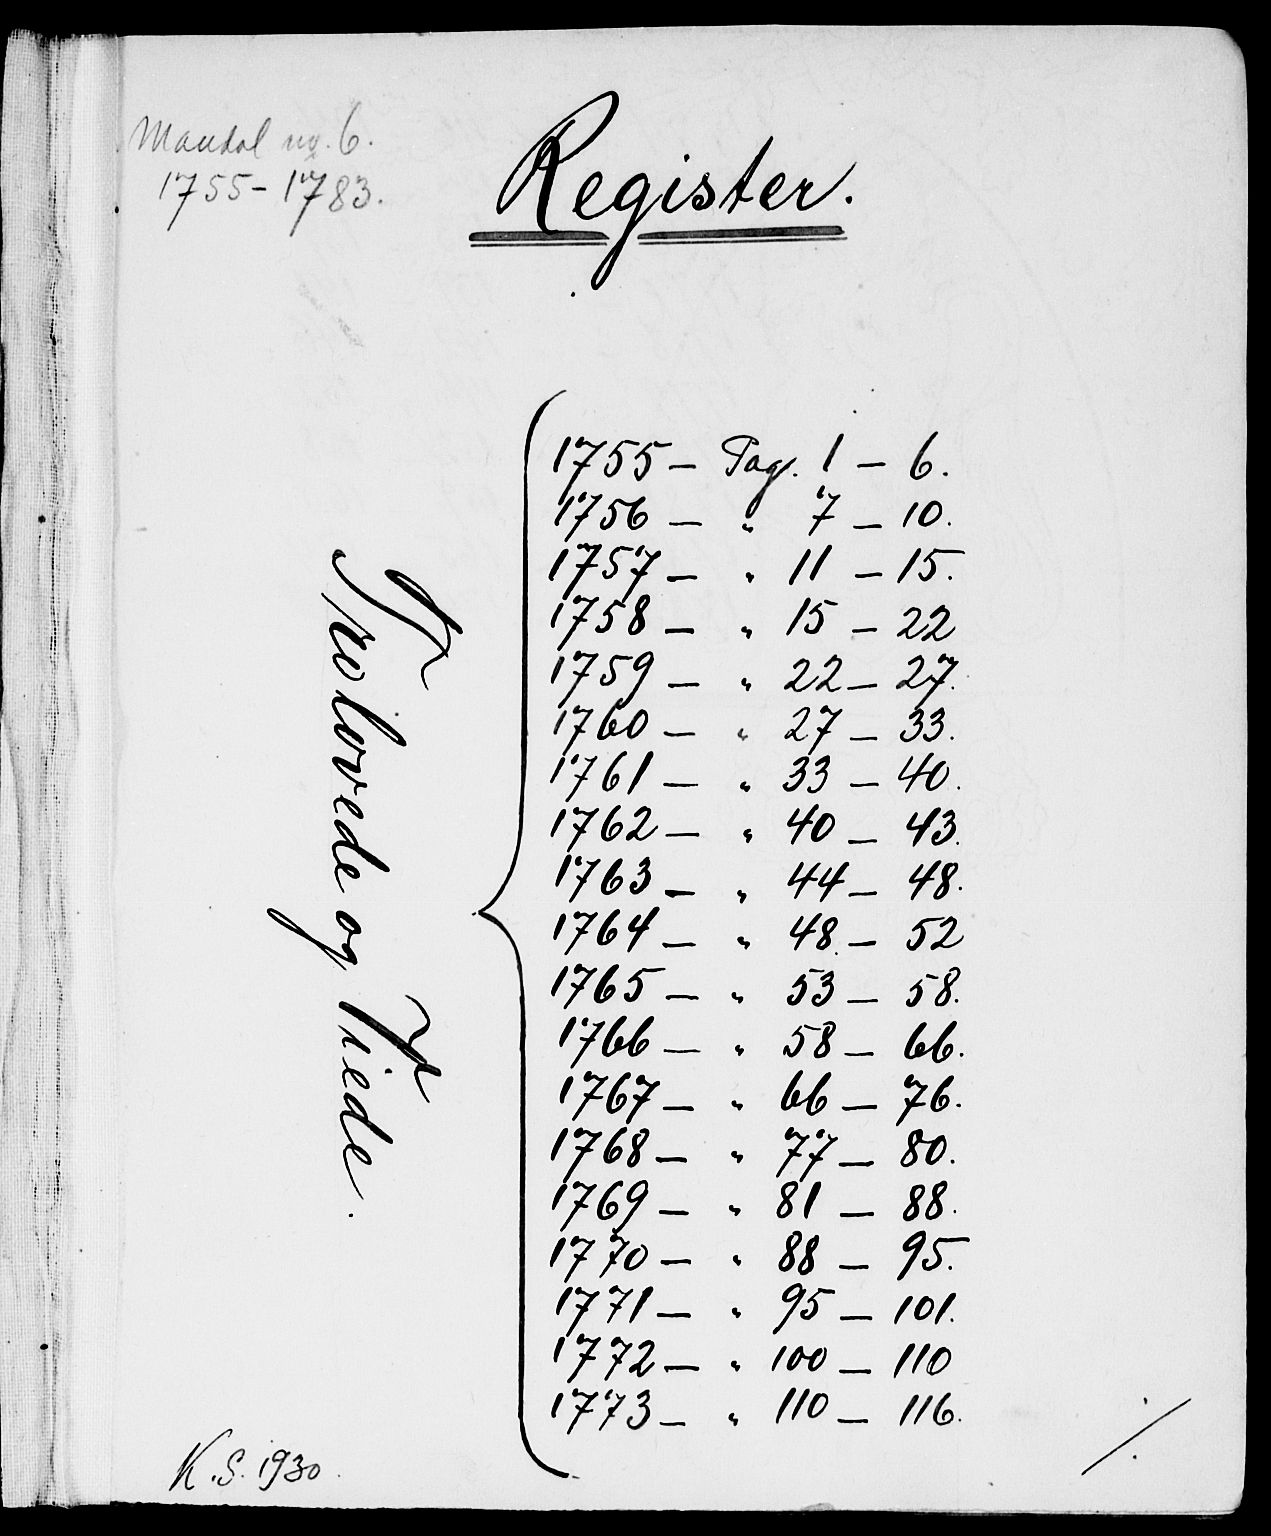 Mandal nr. 6.
1755-1783.
Register.
Trolovede og Viede.
1755 — Pag. 1 — 6.
1756 — " 7 — 10.
1757 — " 11 — 15.
1758 — " 15 — 22
1759 — " 22 — 27.
1760 — " 27 — 33.
1761 — " 33 — 40.
1762 — " 40 — 43.
1763 — " 44 — 48.
1764 — " 48 — 52
1765 — " 53 — 58.
1766 — " 58 — 66.
1767 — " 66 — 76.
1768 — " 77 — 80.
1769 — " 81 — 88.
1770 — " 88 — 95.
1771 — " 95 — 101.
1772 — " 100 — 110
1773 — " 110 — 116.
K.S. 1930.
./.